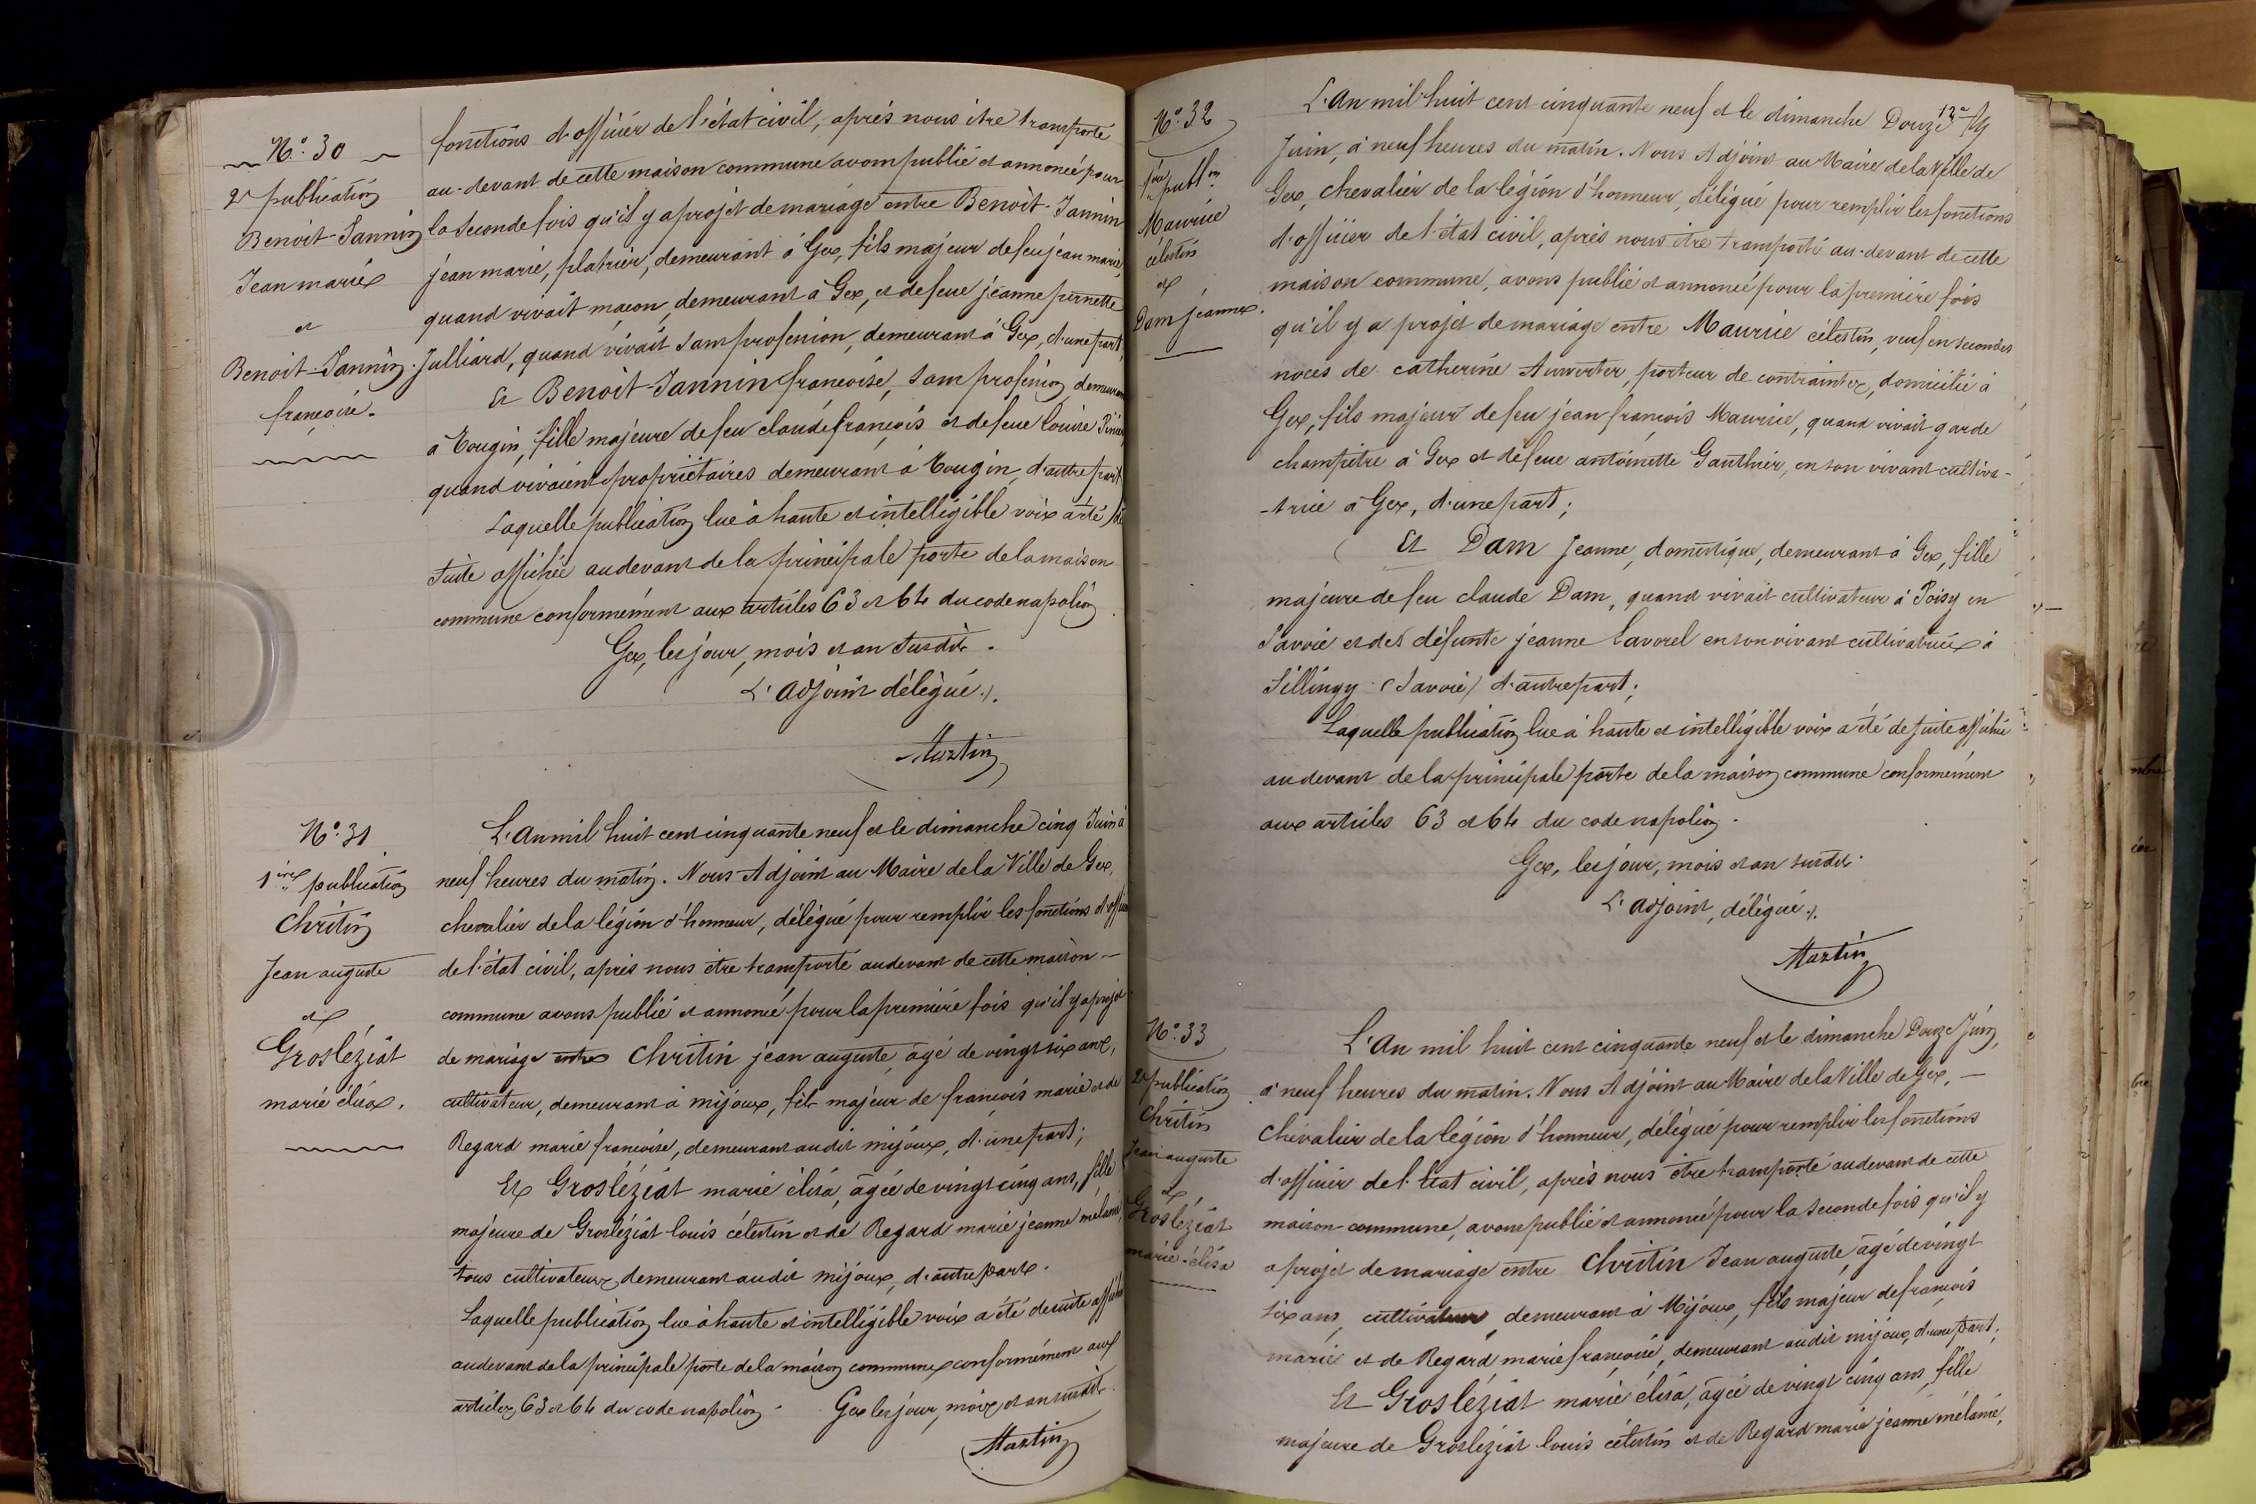 N.o 30
2e publication
Benoit-Jannin
Jean marie
et
Benoit-Jannin
françoise.
fonctions d'officier de l'état civil, après nous être transporté
au-devant de cette maison commune avons publié et annoncé pour
la seconde fois qu'il y a projet de mariage entre Benoit-Jannin
jean marie, platrier, demeurant à Gex, fils majeur de feu jean marie
quand vivait maçon, demeurant à Gex, et de feue jeanne pernette
Julliard, quand vivait sans profession, demeurant à Gex, d'une part,
Et Benoit-Jannin françoise, sans profession, demeurant
à Tougin, fille majeure de feu claude françois et de feue louise
quand vivaient propriétaires demeurant à Tougin, d'autre part
Laquelle publication lue à haute et intelligible voix a été de
suite affichée au devant de la principale porte de la maison
commune conformément aux articles 63 et 64 du code napoléon
Gex, les jour, mois et an susdit.
L'adjoint délégué ./.
Martin
N.o 31
1ère publication
Chritin
Jean auguste
et
Grosléziat
marie élisa.
L'An mil huit cent cinquante neuf et le dimanche cinq Juin à
neuf heures du matin. Nous Adjoint au Maire de la Ville de Gex,
chevalier de la légion d'honneur, délégué pour remplir les fonctions d'officier
de l'état civil, après nous être transporté au devant de cette maison —
commune avons publié et annoncé pour la première fois qu'il y a projet
de mariage entre Chritin jean auguste, âgé de vingt six ans,
cultivateur, demeurant à mijoux, fils majeur de françois marie et de
Regard marie françoise, demeurant audit mijoux, d'une part;
Et Grosléziat marie élisa, âgée de vingt cinq ans, fille
majeure de Grosléziat louis célestin et de Regard marie jeanne mélanie,
tous cultivateurs demeurant audit mijoux, d'autre part.
Laquelle publication lue à haute et intelligible voix a été de suite affichée
au devant de la principale porte de la maison commune conformément aux
articles 63 et 64 du code napoléon. Gex les jour, mois et an susdit.
Martin
N.o 32
1ère publ.on
Maurice
célestin
et
Dam jeanne.
12e
L'An mil huit cent cinquante neuf et le dimanche Douze
Juin, à neuf heures du matin. Nous Adjoint au Maire de la Ville de
Gex, chevalier de la légion d'honneur, délégué pour remplir les fonctions
d'officier de l'état civil, après nous être transporté au-devant de cette
maison commune, avons publié et annoncé pour la première fois
qu'il y a projet de mariage entre Maurice célestin, veuf en secondes
noces de catherine Anwerter, porteur de contraintes, domicilié à
Gex, fils majeur de feu jean françois Maurice, quand vivait garde
champêtre à Gex et de feue antoinette Gauthier, en son vivant cultiva-
-trice à Gex, d'une part;
Et Dam Jeanne, domestique, demeurant à Gex, fille
majeure de feu claude Dam, quand vivait cultivateur à Poisy en
Savoie et de défunte jeanne Lavorel en son vivant cultivatrice à
Sillingy (Savoie) d'autre part;
Laquelle publication lue à haute et intelligible voix a été de suite affichée
au devant de la principale porte de la maison commune conformément
aux articles 63 et 64 du code napoléon.
Gex, les jour, mois et an susdit.
L'adjoint, délégué ./.
Martin
N.o 33
2e publication
Chritin
Jean auguste
et
Grosléziat
marie-élisa
L'An mil huit cent cinquante neuf et le dimanche Douze Juin,
à neuf heures du matin. Nous Adjoint au Maire de la Ville de Gex, —
Chevalier de la légion d'honneur, délégué pour remplir les fonctions
d'officier de l'état civil, après nous être transporté au devant de cette
maison commune, avons publié et annoncé pour la seconde fois qu'il y
a projet de mariage entre Chritin Jean auguste, âgé de vingt
six ans, cultivateur, demeurant à Mijoux, fils majeur de françois
marie et de Regard marie françoise, demeurant audit mijoux, d'une part;
Et Grosléziat marie élisa, âgée de vingt cinq ans, fille
majeure de Grosléziat louis célestin et de Regard marie jeanne mélanie,